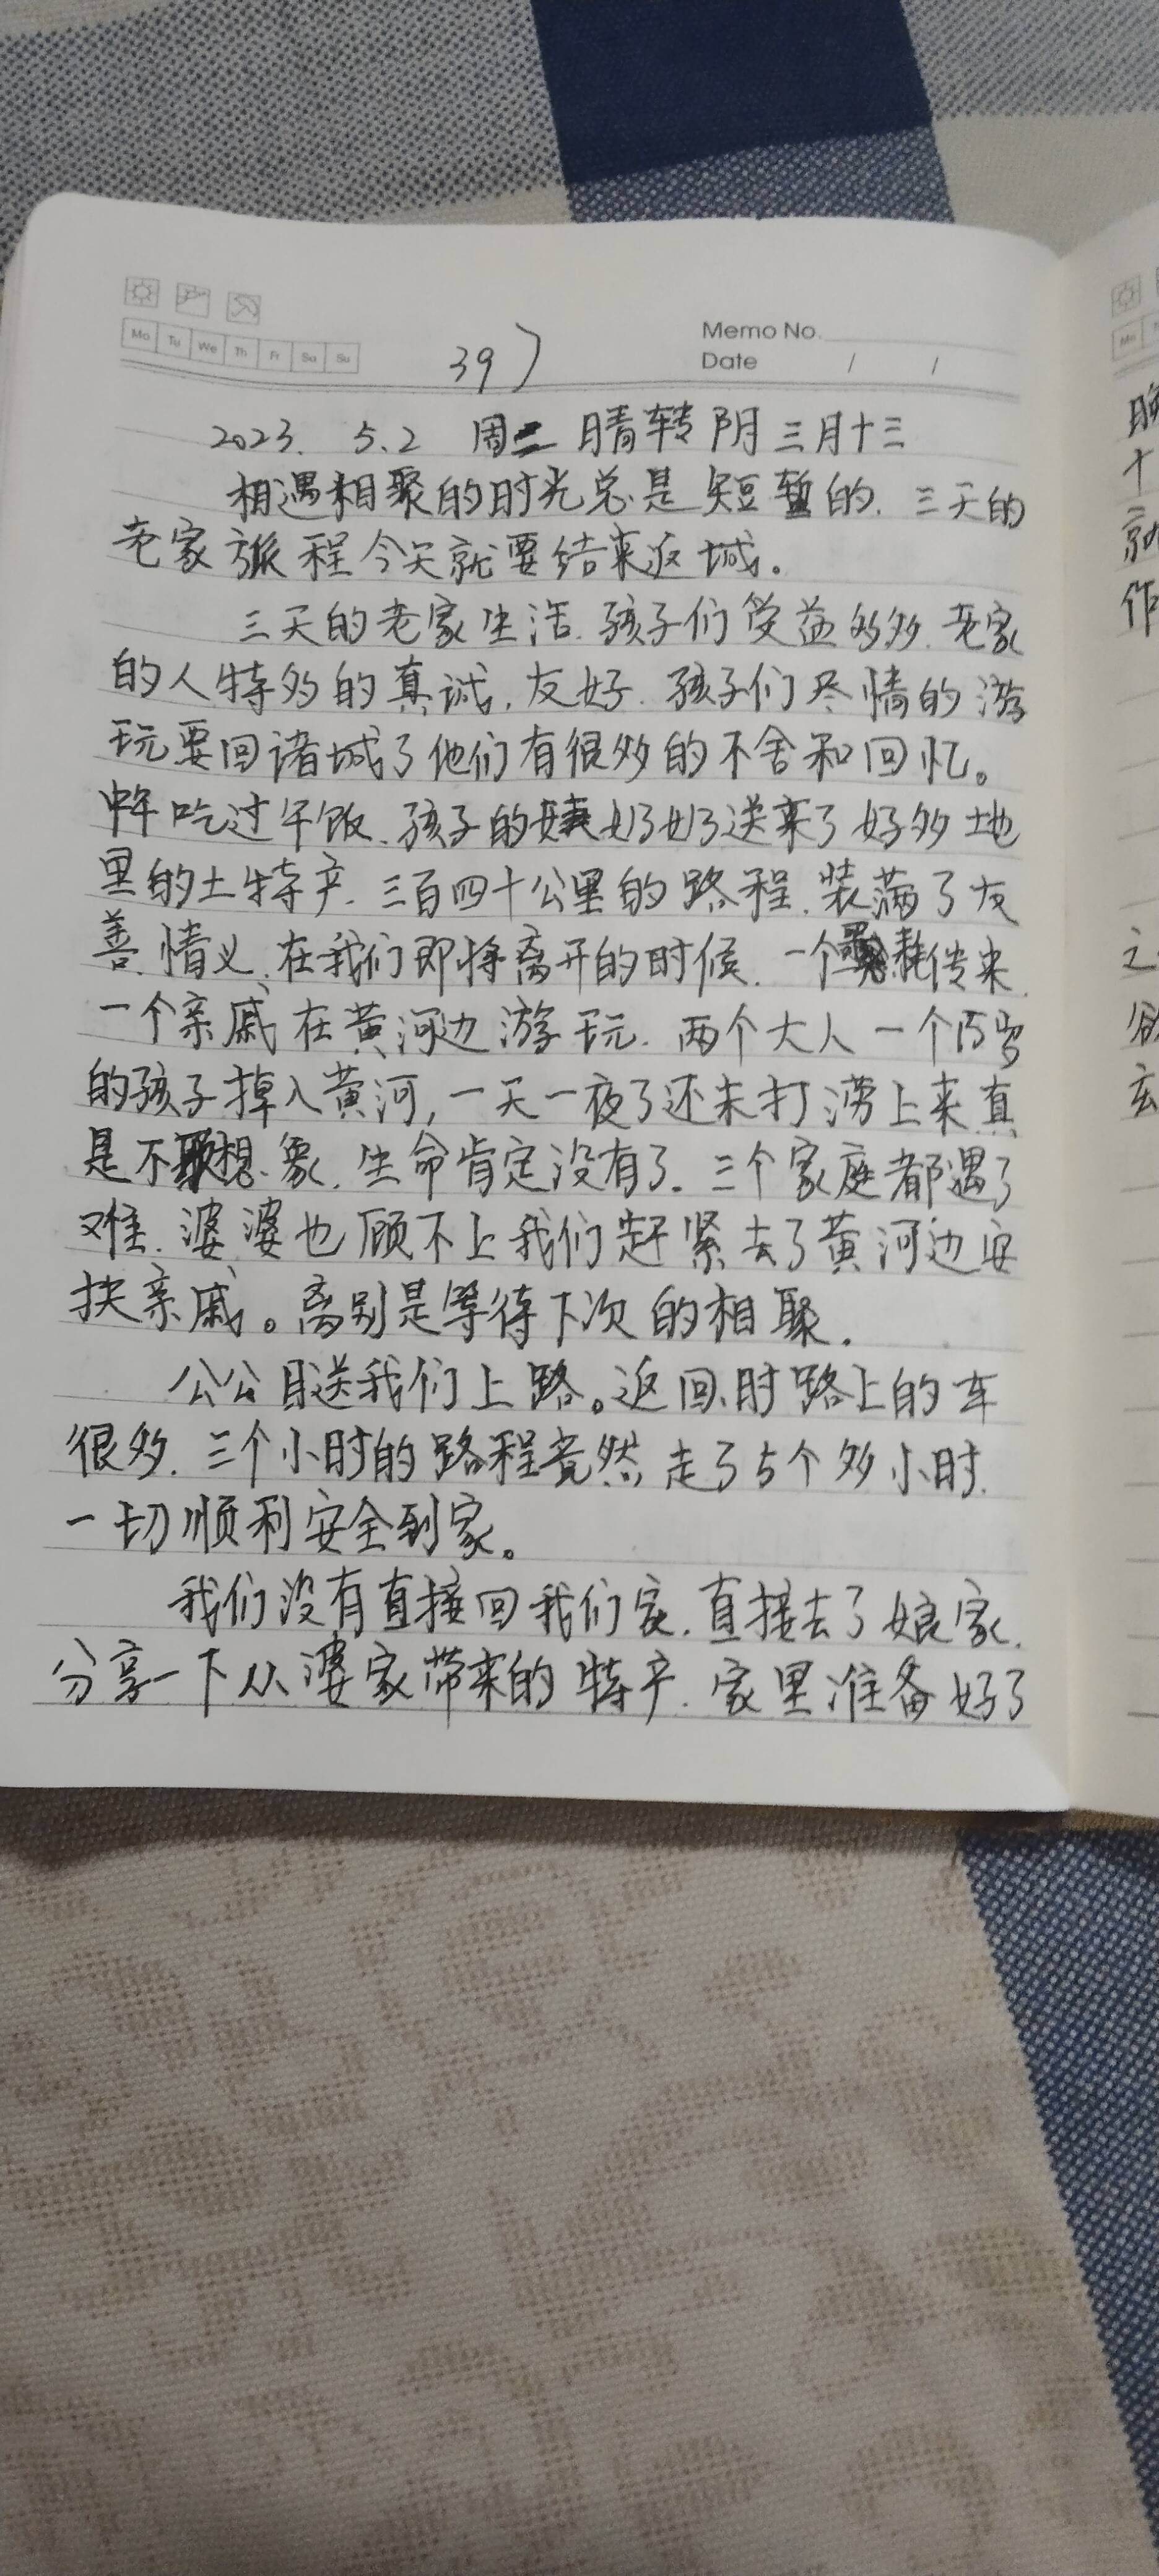 Mo Tu We Th Fr Sa Su
Memo No.
Date / /
39)
2023. 5.2 周二 晴转阴 三月十三
相遇相聚的时光总是短暂的. 三天的
老家旅程今天就要结束返城。
三天的老家生活. 孩子们受益多多. 老家
的人特多的真诚, 友好. 孩子们尽情的游
玩要回诸城了他们有很多的不舍和回忆。
中午吃过午饭. 孩子的姨奶奶送来了好多地
里的土特产. 三百四十公里的路程. 装满了友
善、情义、在我们即将离开的时候. 一个噩耗传来.
一个亲戚在黄河边游玩. 两个大人一个15岁
的孩子掉入黄河, 一天一夜了还未打涝上来真
是不敢想象. 生命肯定没有了. 三个家庭都遇了
难. 婆婆也顾不上我们赶紧去了黄河边安
抚亲戚。离别是等待下次的相聚.
公公目送我们上路。返回时路上的车
很多. 三个小时的路程竟然走了5个多小时.
一切顺利安全到家。
我们没有直接回我们家. 直接去了娘家.
分享一下从婆家带来的特产. 家里准备好了
晚
十
就
作
之
玄